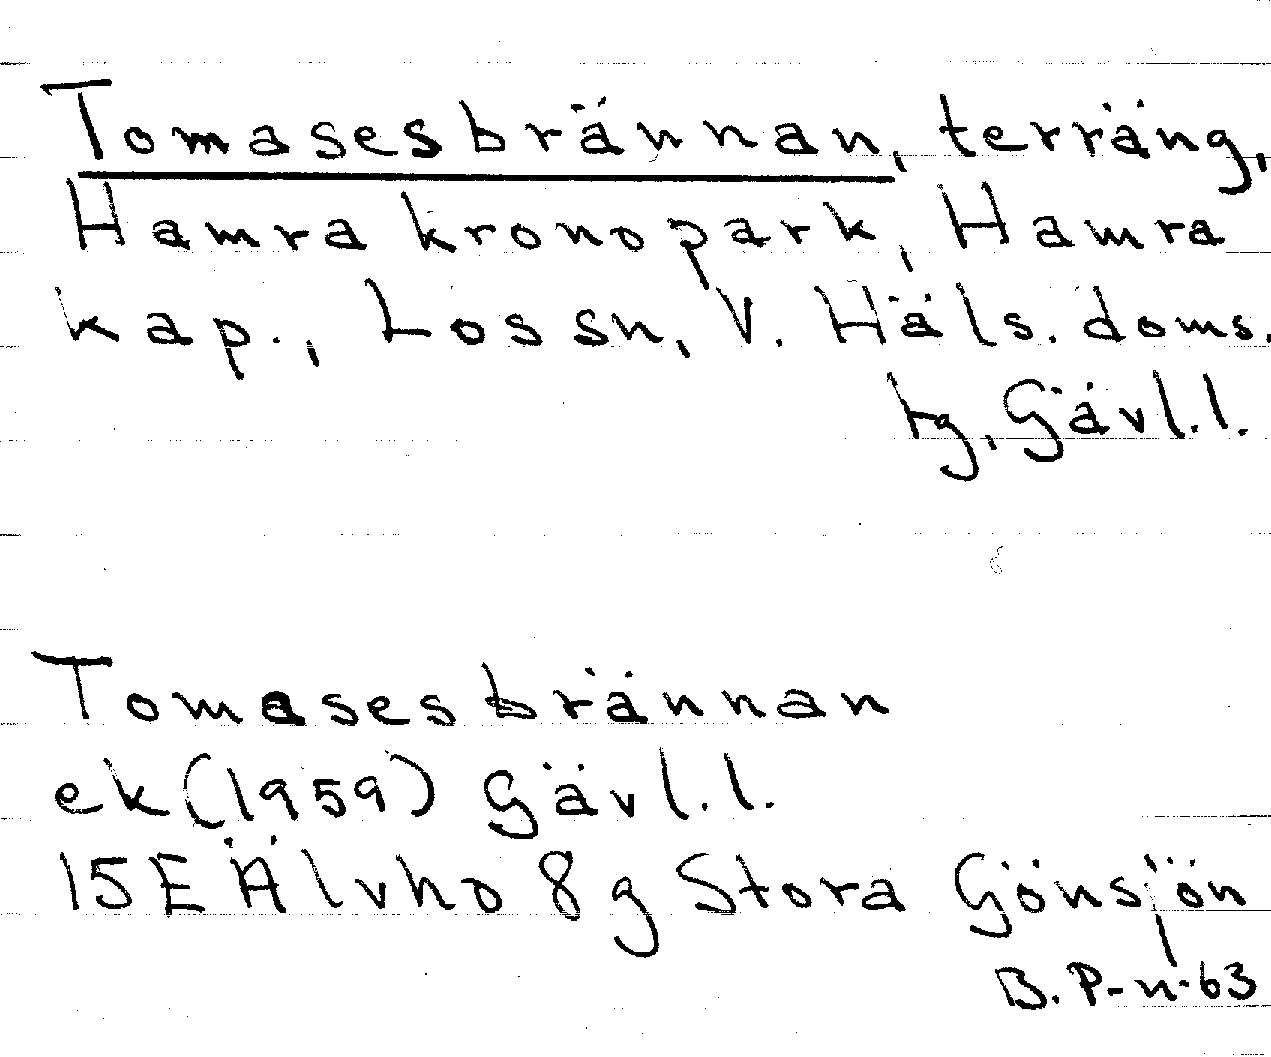 Tomasesbrännan, terräng,
Hamra kronopark, Hamra
kap., Lossn, V. Häls. doms.
tg, Gävl.l.
Tomasesbrännan
ek (1959) Gävl.l.
15E Älvho 8g Stora Gönsjön
B. P-n-63